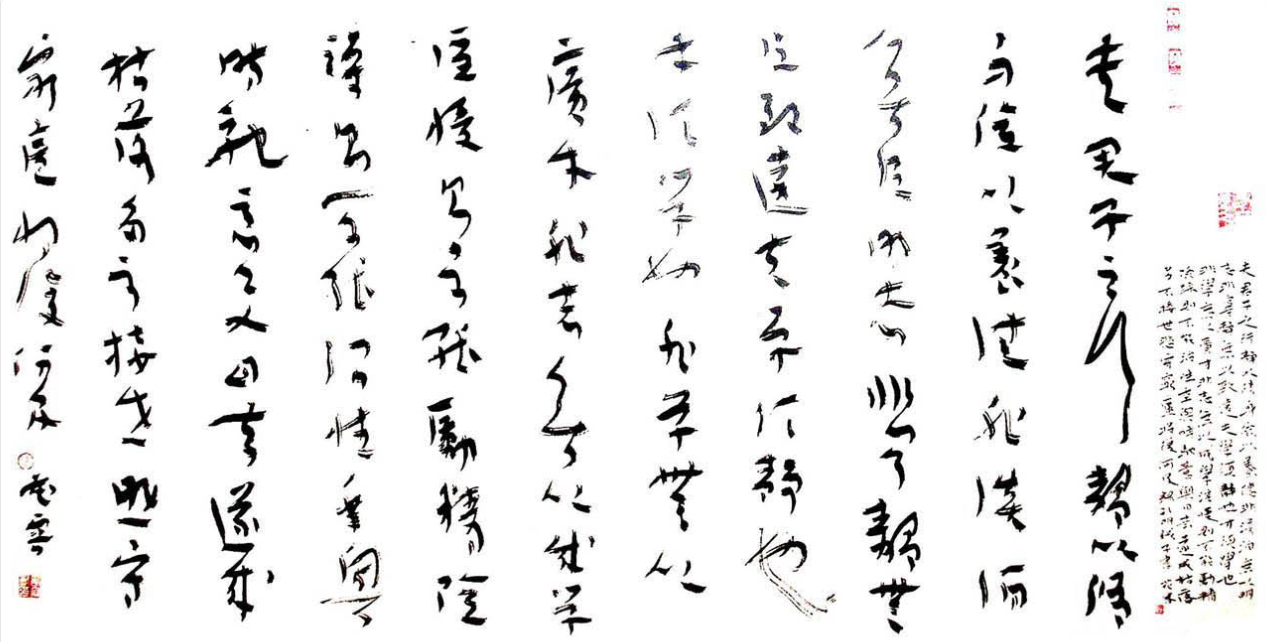 夫君子之行靜以修身儉以養德非淡泊無以明
志非寧靜無以致遠夫學須靜也才須學也
非學無以廣才非志無以成學淫慢則不能勵精
險躁則不能治性年與時馳意與日去遂成枯落
多不接世悲守窮廬將復何及
夫君子之行靜以修
身儉以養德非淡泊
無以明志非寧靜無
以致遠夫學須靜也
才須學也非學無以
廣才非志無以成學
淫慢則不能勵精險
躁則不能治性年與
時馳意與日去遂成
枯落多不接世悲守
窮廬將復何及